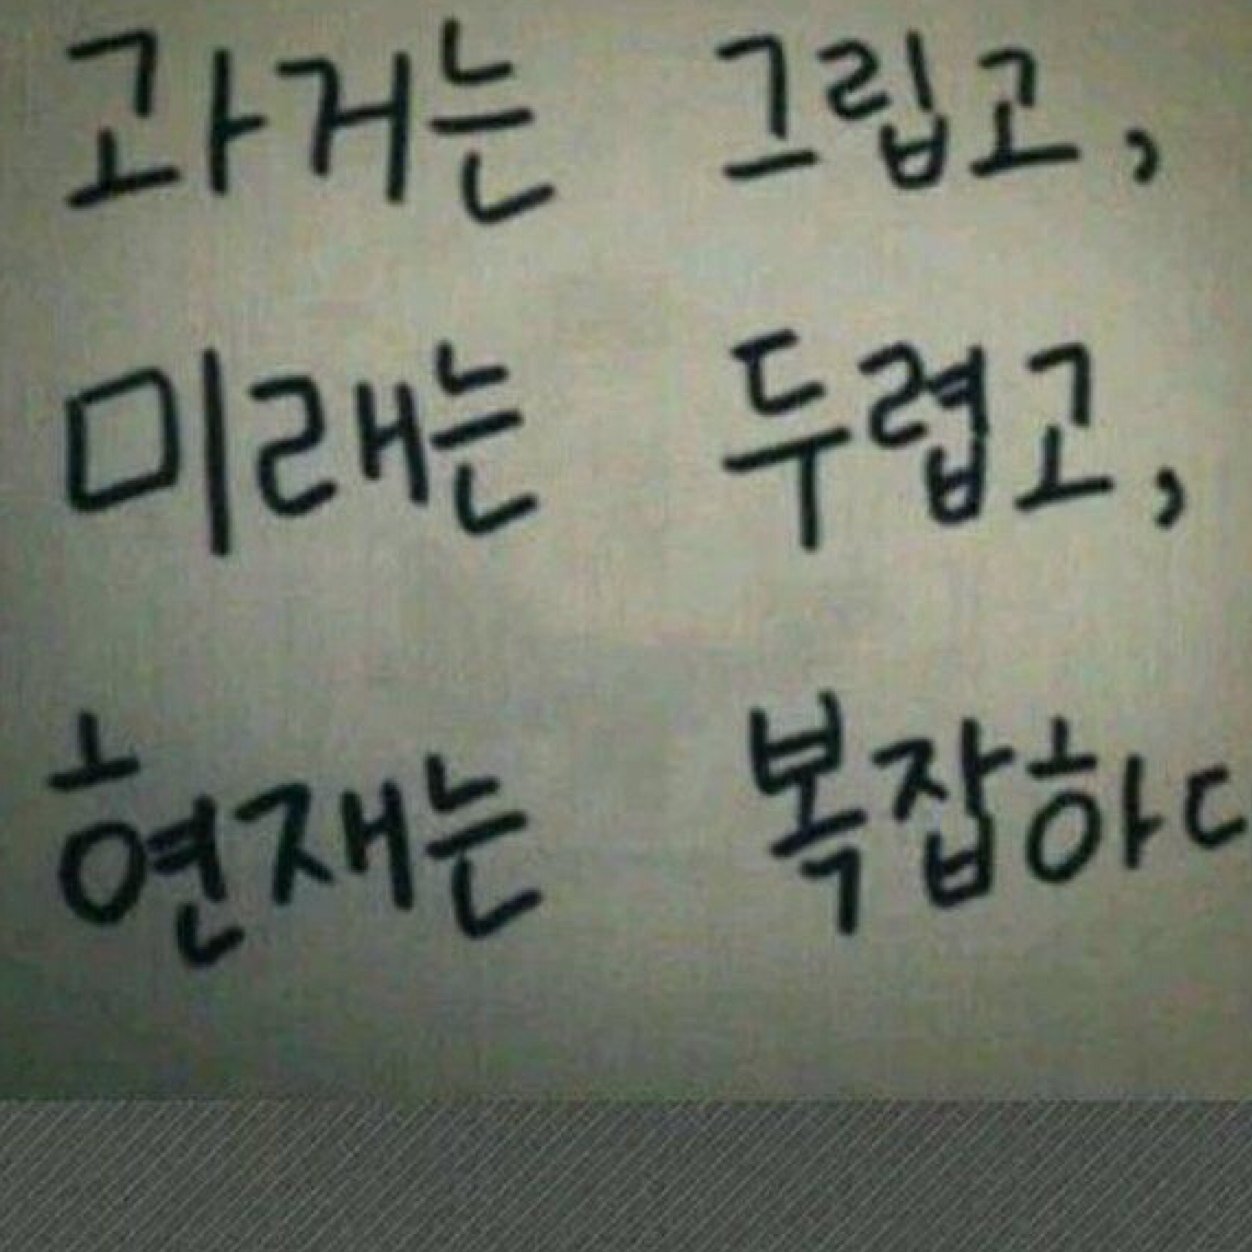 과거는 그립고,
미래는 두렵고,
현재는 복잡하다